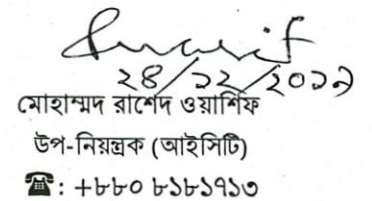 ২৪/১২/২০১৯
মোহাম্মদ রাশেদ ওয়াশিফ
উপ-নিয়ন্ত্রক (আইসিটি)
☎: +৮৮০ ৮১৮১৭১৩